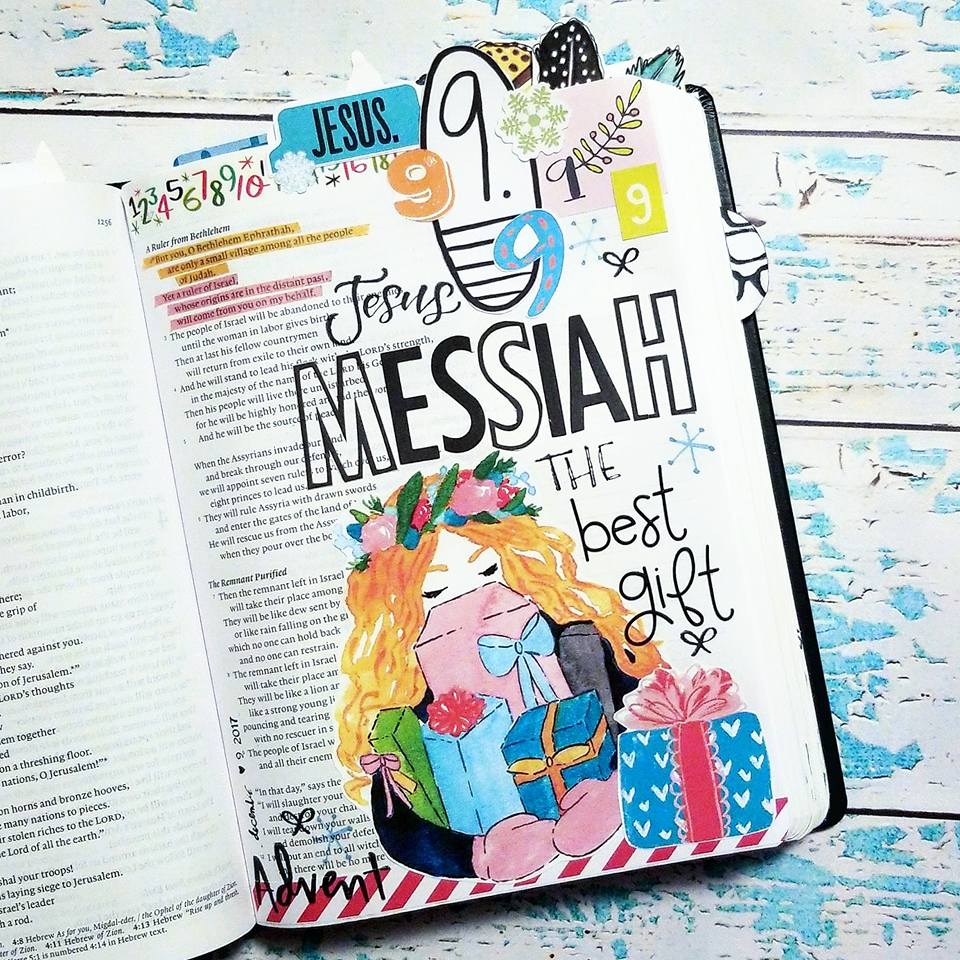 1256
ant;
error?
an in childbirth.
labor,
here;
e grip of
hered against you.
hey say.
on of Jerusalem.*"
LORD's thoughts
m together
ed
on a threshing floor.
nations, O Jerusalem!"*
on horns and bronze hooves,
e many nations to pieces.
ir stolen riches to the LORD,
e Lord of all the earth."
shal your troops!
s laying siege to Jerusalem.
srael's leader
h a rod.
4:8 Hebrew As for you, Migdal-eder, / the Ophel of the daughter of Zion.
ter of Zion. 4:11 Hebrew of Zion. 4:13 Hebrew "Rise up and thresh
ew 5:1 is numbered 4:14 in Hebrew text.
JESUS.
9.
9
9
9
9
1 2 3 4 5 6 7 8 9 10
16
18
A Ruler from Bethlehem
"But you, O Bethlehem Ephrathah,
are only a small village among all the people
of Judah.
Yet a ruler of Israel,
whose origins are in the distant past,
will come from you on my behalf.
The people of Israel will be abandoned to
until the woman in labor gives birth
Then at last his fellow countrymen
will return from exile to their own
And he will stand to lead his flock with LORD's strength,
in the majesty of the name of the LORD his
Then his people will live there
for he will be highly honored around the
And he will be the source of
When the Assyrians invade our land
and break through our
we will appoint seven rulers to watch over us,
eight princes to lead us
They will rule Assyria with drawn swords
and enter the gates of the land of
He will rescue us from the
when they pour over the
The Remnant Purified
Then the remnant left in Israel
will take their place among
They will be like dew sent by
or like rain falling on the
which no one can hold back
and no one can restrain.
The remnant left in Israel
will take their place
They will be like a lion
like a strong young
pouncing and tearing
with no rescuer in
The people of Israel
and all their
"In that day," says the
"I will slaughter your
I will tear down your walls
and demolish your
I will put an end to all
there will be no
Jesus
MESSIAH
THE
best
gift
december ♥ 9, 2017
Advent